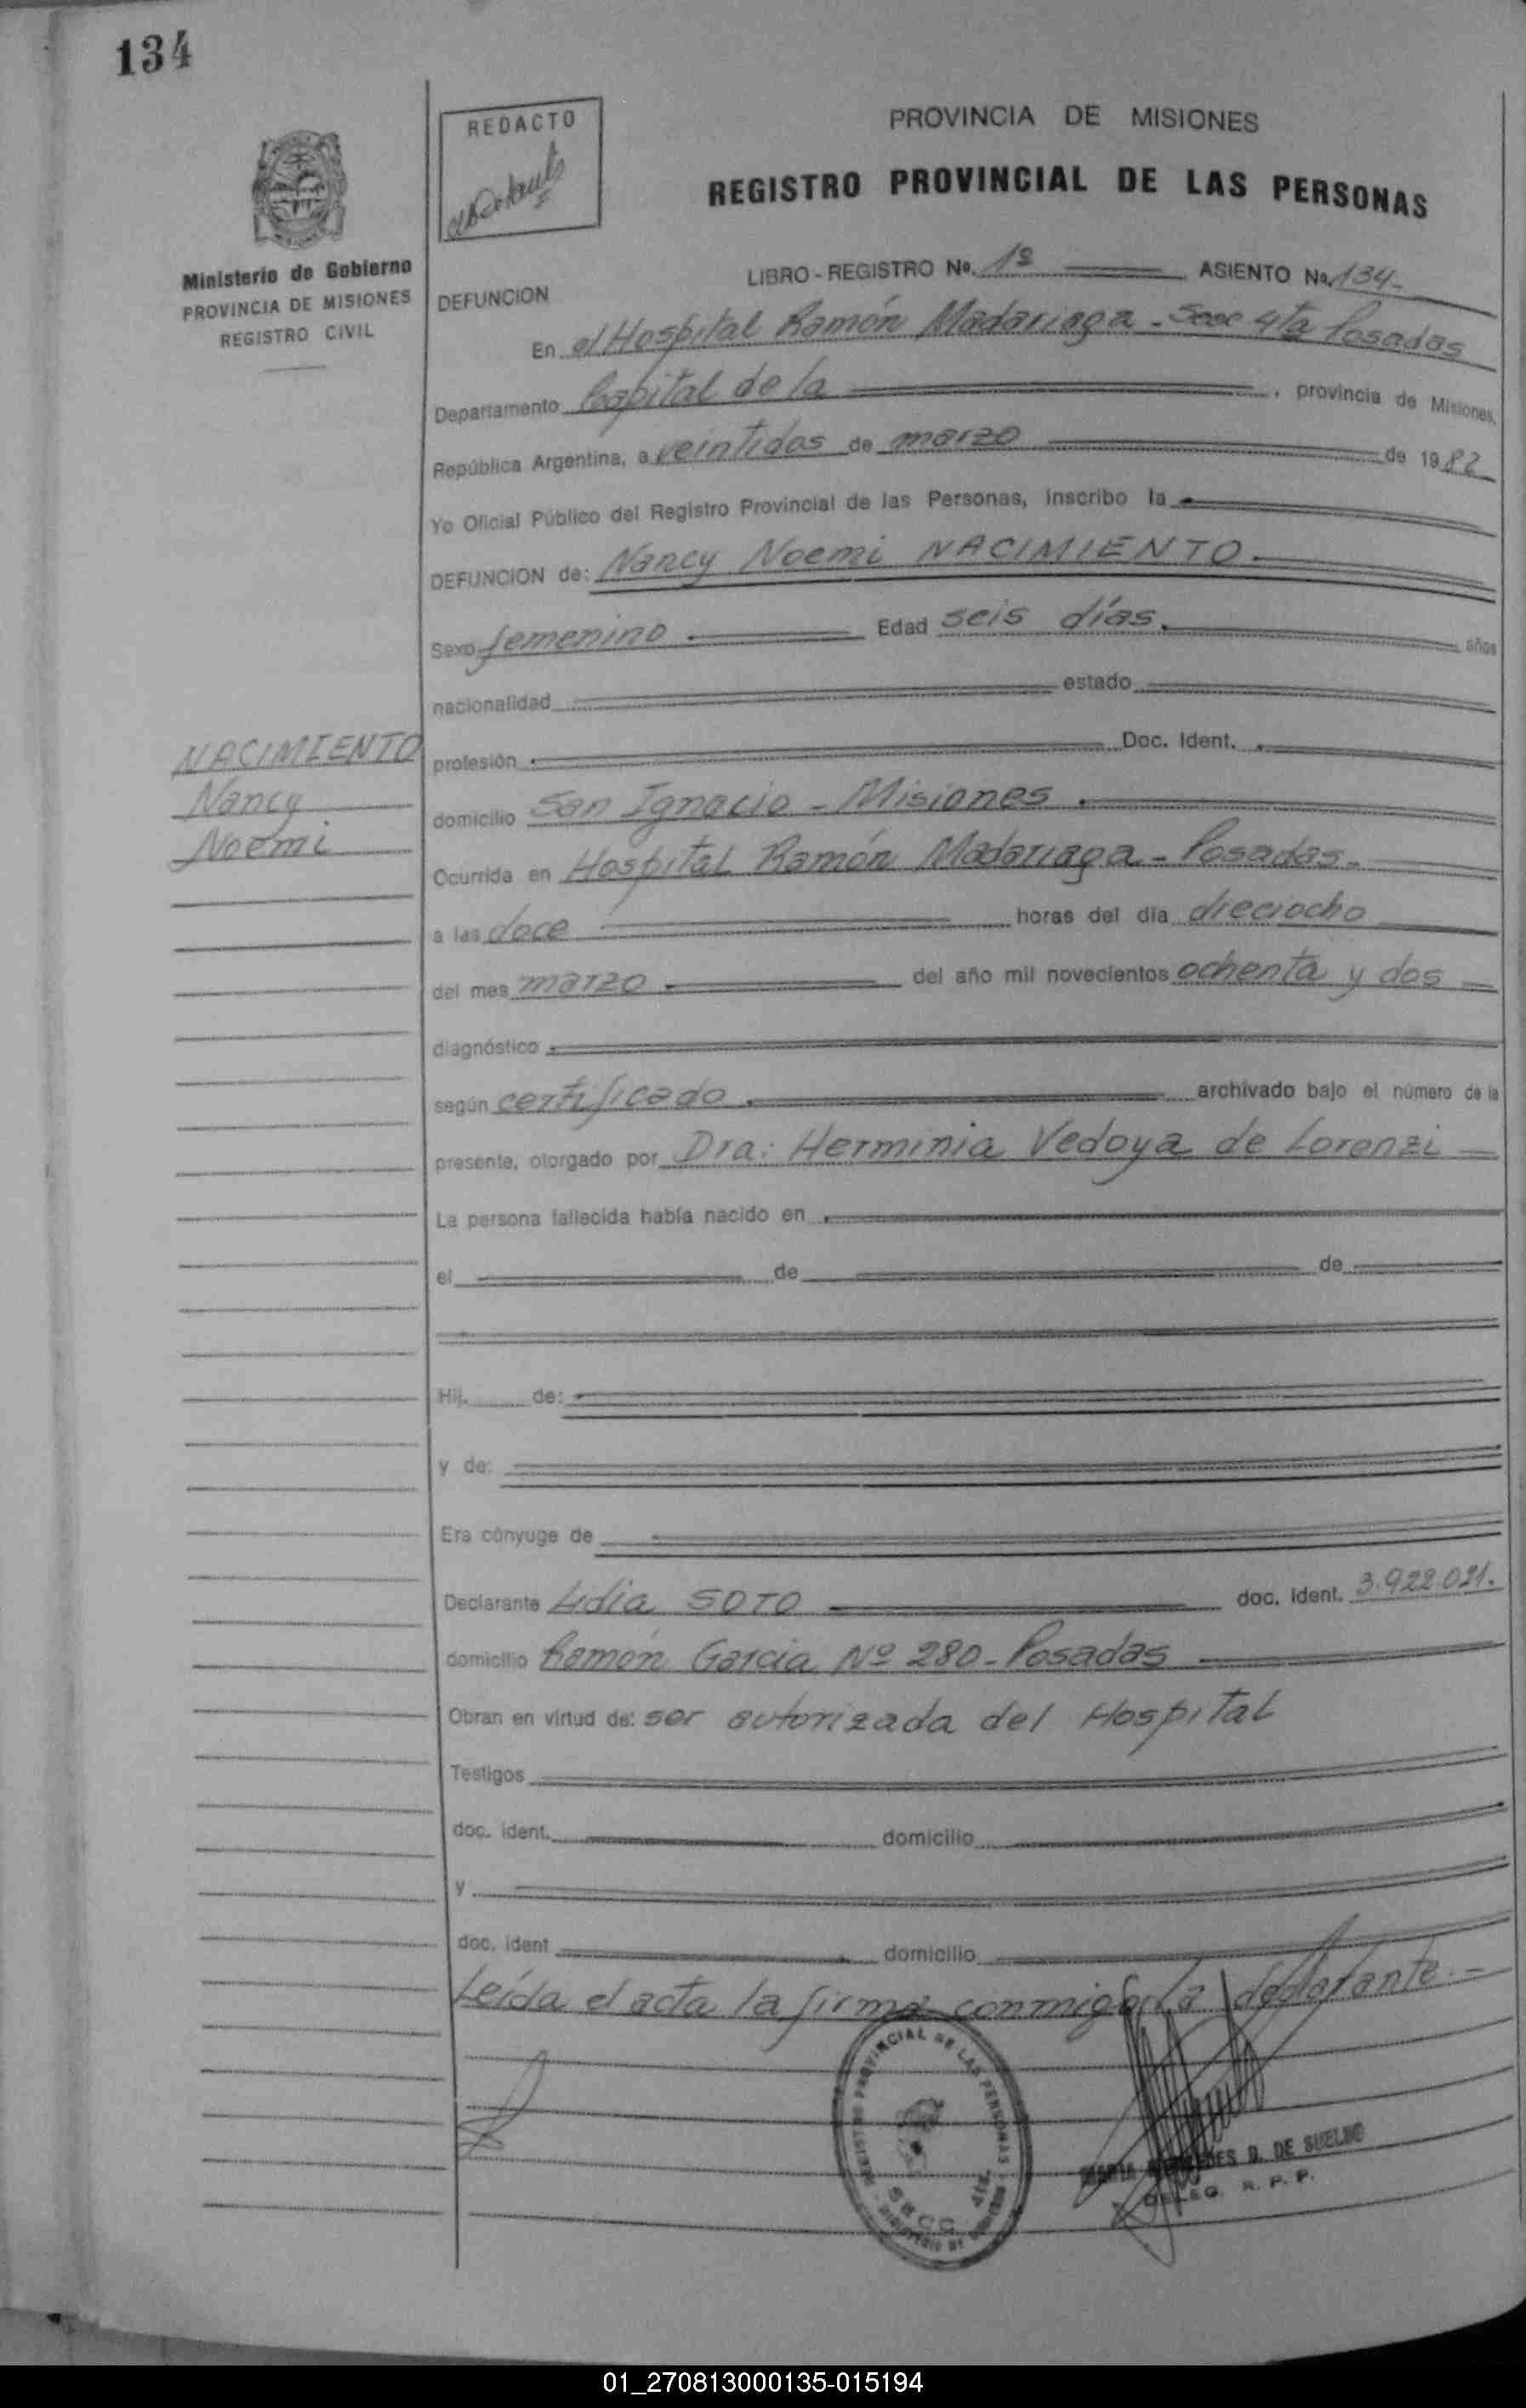 134
REDACTO
PROVINCIA DE MISIONES
REGISTRO PROVINCIAL DE LAS PERSONAS
Ministerio de Gobierno
PROVINCIA DE MISIONES
REGISTRO CIVIL
LIBRO - REGISTRO No. 1º ASIENTO No. 134-
DEFUNCION
En el Hospital Ramón Madariaga - Secc 4ta Posadas
Departamento Capital de la , provincia de Misiones,
República Argentina, a veintidos de marzo de 1982
Yo Oficial Público del Registro Provincial de las Personas, inscribo la
DEFUNCION de: Nancy Noemi NACIMIENTO
Sexo femenino Edad seis días. años
nacionalidad estado
NACIMIENTO
Nancy
Noemi
profesión Doc. Ident.
domicilio San Ignacio - Misiones
Ocurrida en Hospital Ramón Madariaga - Posadas.
a las doce horas del día dieciocho
del mes marzo del año mil novecientos ochenta y dos
diagnóstico
según certificado archivado bajo el número de la
presente, otorgado por Dra: Herminia Vedoya de Lorenzi
La persona fallecida había nacido en
el de de
Hij. de:
y de:
Era cónyuge de
Declarante Lidia SOTO doc. ident. 3.922.021.
domicilio Ramón Garcia Nº 280 - Posadas
Obran en virtud de: ser autorizada del Hospital
Testigos
doc. ident. domicilio
y
doc. ident domicilio
Leída el acta la firma conmigo la declarante.-
REGISTRO PROVINCIAL DE LAS PERSONAS
SECC 4ta.
MARIA D. DE SUELDO
DELEG. R. P. P.
01_270813000135-015194